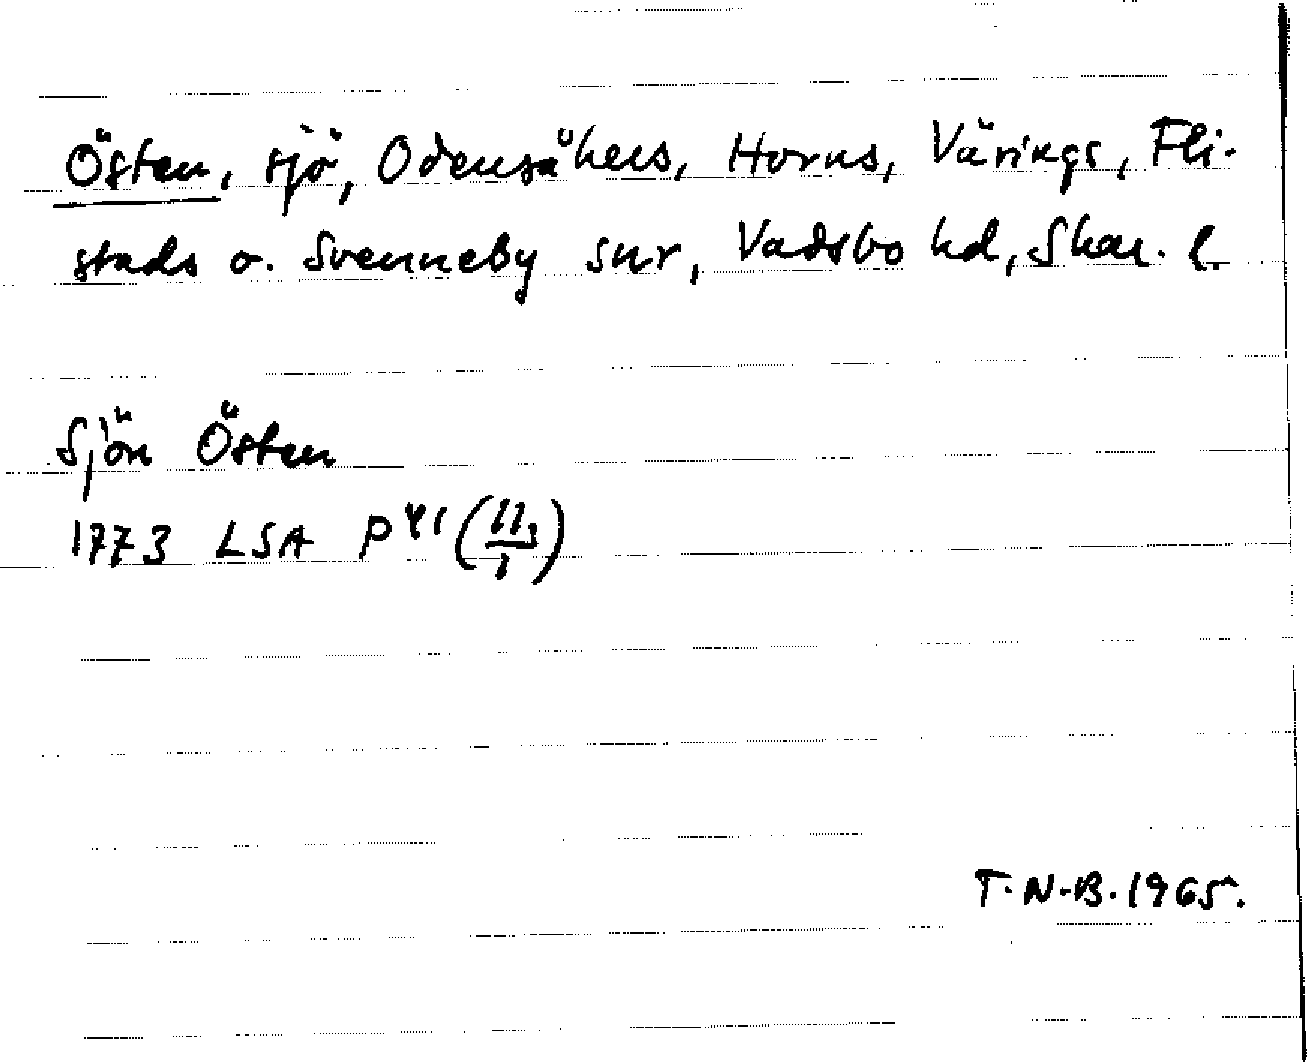 Östen, sjö, Odensåkers, Horns, Värings, Fli-
stads o. Svenneby snr, Vadsbo hd, Skar. l.
Sjön Östen
1773 LSA P 41 (11/1)
T. N-B. 1965.